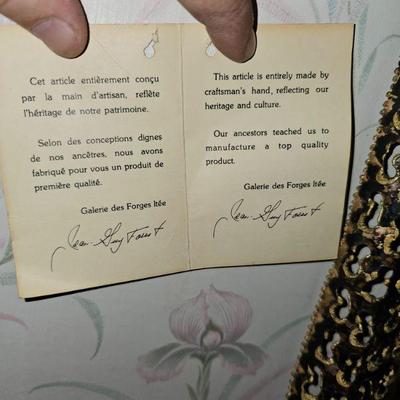 Cet article entièrement conçu
par la main d'artisan, reflète
l'héritage de notre patrimoine.
Selon des conceptions dignes
de nos ancêtres, nous avons
fabriqué pour vous un produit de
première qualité.
Galerie des Forges ltée
This article is entirely made by
craftsman's hand, reflecting our
heritage and culture.
Our ancestors teached us to
manufacture a top quality
product.
Galerie des Forges ltée